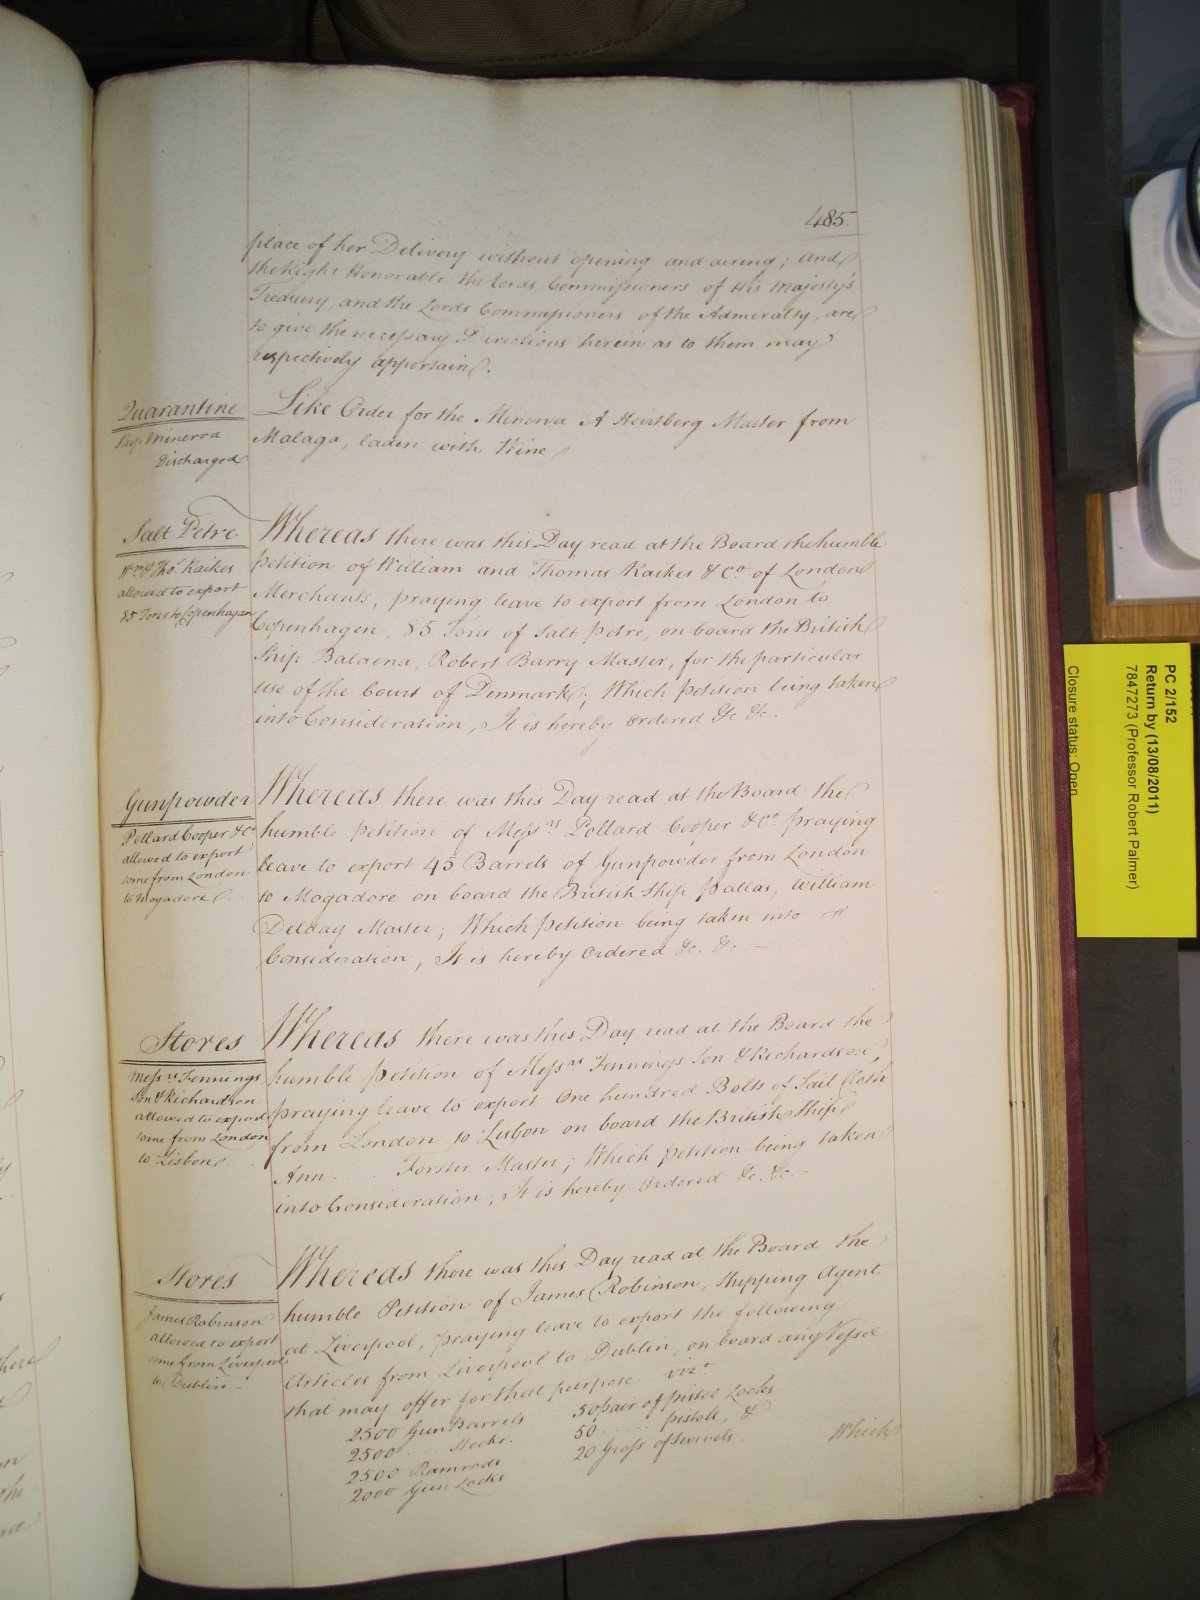 485.
place of her Delivery without opening and airing; and
the Right Honorable the Lords Commissioners of His Majesty's
Treasury, and the Lords Commissioners of the Admiralty, are
to give the necessary Directions herein as to them may
respectively appertain.
Quarantine
Ship Minerva
Discharged
Like Order for the Minerva A Heistberg Master from
Malaga, laden with Wine
Salt Petre
Wm. & Thos. Raikes
allowed to export
85 Tons to Copenhagen
Whereas there was this Day read at the Board the humble
Petition of William and Thomas Raikes & Co. of London
Merchants, praying leave to export from London to
Copenhagen, 85 Tons of Salt Petre, on board the British
Ship Balaena, Robert Barry Master, for the particular
use of the Court of Denmark; Which Petition being taken
into Consideration, It is hereby Ordered &c &c.
Gunpowder
Pollard Cooper & Co.
allowed to export
some from London
to Mogadore.
Whereas there was this Day read at the Board the
humble Petition of Messrs. Pollard Cooper & Co. praying
leave to export 45 Barrels of Gunpowder from London
to Mogadore on board the British Ship Pallas, William
Delday Master; Which Petition being taken into
Consideration, It is hereby Ordered &c. &c.
Stores
Messrs. Jennings
Son & Richardson
allowed to export
some from London
to Lisbon.
Whereas there was this Day read at the Board the
humble Petition of Messrs. Jennings Son & Richardson,
praying leave to export One hundred Bolts of Sail Cloth
from London to Lisbon on board the British Ship
Ann .... Forster Master; Which Petition being taken
into Consideration, It is hereby Ordered &c. &c.
Stores
James Robinson
allowed to export
some from Liverpool
to Dublin
Whereas there was this Day read at the Board the
humble Petition of James Robinson, Shipping Agent
at Liverpool, praying leave to export the following
Articles from Liverpool to Dublin, on board any Vessel
that may offer for that purpose vizt.
2500 Gun Barrels
2500 .. Stocks.
2500 Ramrods
2000 Gun Locks
50 pair of Pistol Locks
50 .... Pistols, &
20 Gross of Swivels.
Which
PC 2/152
Return by (13/08/2011)
7847273 (Professor Robert Palmer)
Closure status: Open